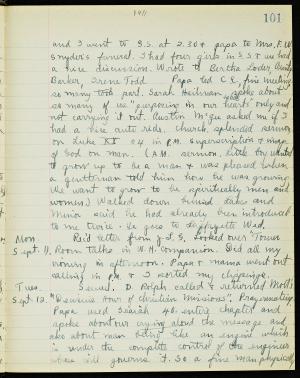 1911
101
and I went to S.S. at 2.30 & papa to Mrs. F. W.
Snyder's funeral. I had four girls in S.S. & we had
a nice discussion. Wrote to Bertha Loder,
Barker, Irene Todd. Papa led C.E. fine meeting
so many took part. Sarah Heilman spoke about
so many of us "purposing in our hearts" only and
not carrying it out. Austin McGee asked me if I
had a nice auto ride. Church, splendid sermon
on Luke in P.M. Superscription & image
of God on man. (A.M. sermon, little boy wanted
to grow up to be a man & was pleased when
a gentleman told him how he was growing.
We want to grow to be spiritually men and
women.) Walked down behind and
Minor said he had already been introduced
to me twice. He goes to Lafayette Wed.
Mon. Rec'd letter from J. S. Looked over "Tower
Sept. 11. Room Talks in W. H. Companion. Did all my
ironing in afternoon. Papa & mama went out
calling in P.M. & I sorted my clippings.
Tues. Sewed. D. Rolph called & returned Mott's
Sept. 12. "Decisive Hour of Christian Missions". Prayermeeting
Papa used Isaiah 40, entire chapter and
spoke about our crying aloud the message and
also about man being like an engine which
is under the complete control of the engineer
who governs it. So a fine man physically